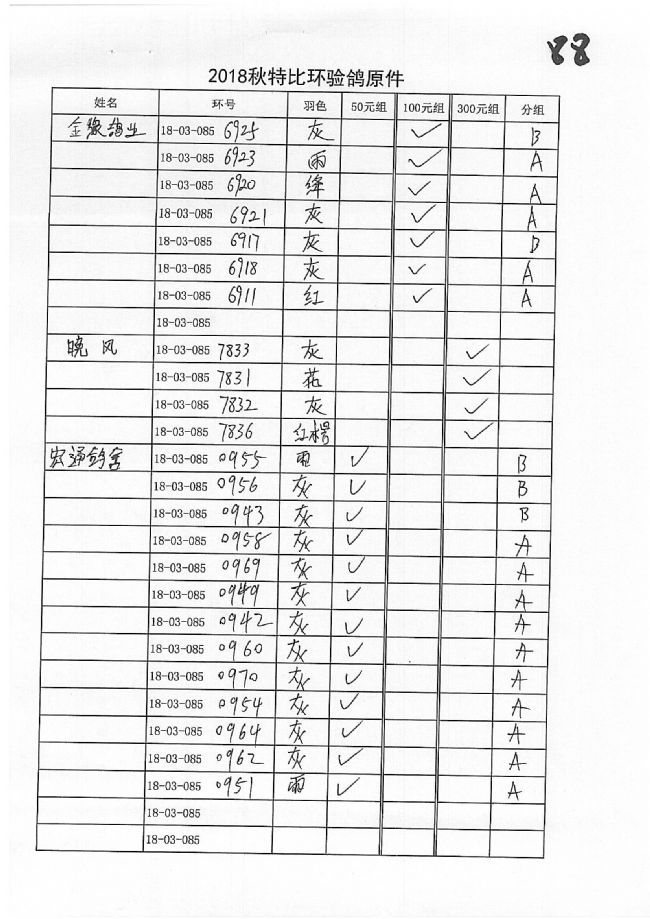 88
2018秋特比环验鸽原件
姓名 环号 羽色 50元组 100元组 300元组 分组
金豫鸽业 18-03-085 6925 灰 ✓ B
18-03-085 6923 雨 ✓ A
18-03-085 6920 绛 ✓ A
18-03-085 6921 灰 ✓ A
18-03-085 6917 灰 ✓ B
18-03-085 6918 灰 ✓ A
18-03-085 6911 红 ✓ A
18-03-085
晚风 18-03-085 7833 灰 ✓
18-03-085 7831 花 ✓
18-03-085 7832 灰 ✓
18-03-085 7836 红楞 ✓
宏通鸽舍 18-03-085 0955 雨 ✓ B
18-03-085 0956 灰 ✓ B
18-03-085 0943 灰 ✓ B
18-03-085 0958 灰 ✓ A
18-03-085 0969 灰 ✓ A
18-03-085 0949 灰 ✓ A
18-03-085 0942 灰 ✓ A
18-03-085 0960 灰 ✓ A
18-03-085 0970 灰 ✓ A
18-03-085 0954 灰 ✓ A
18-03-085 0964 灰 ✓ A
18-03-085 0962 灰 ✓ A
18-03-085 0951 雨 ✓ A
18-03-085
18-03-085